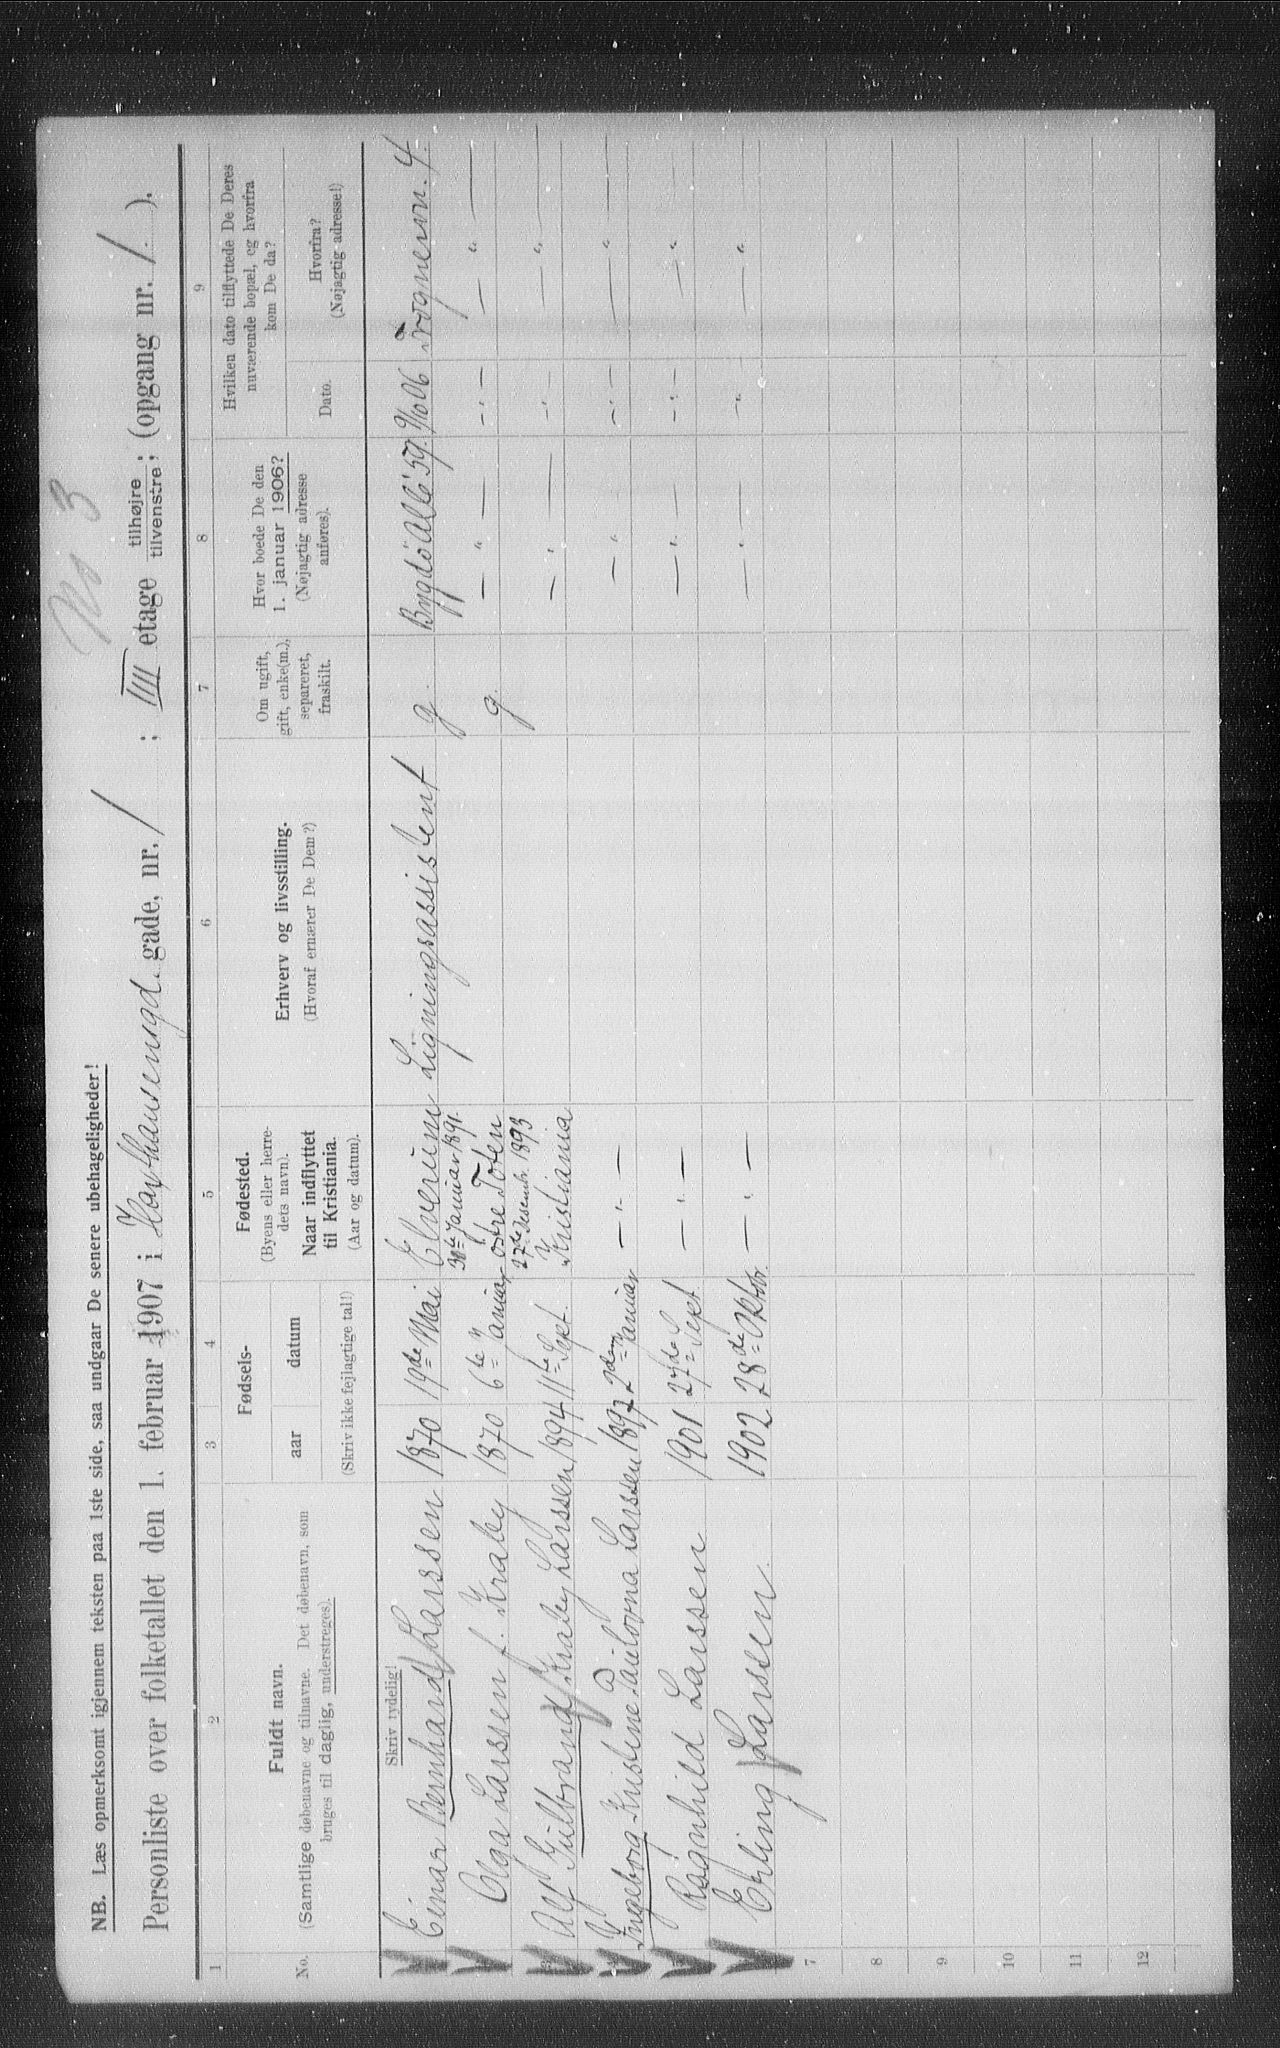 No 3
NB. Læs opmerksomt igjennem teksten paa 1ste side, saa undgaar De senere ubehageligheder!
Personliste over folketallet den 1. februar 1907 i Haxthausensgd. gade, nr. 1 ; IIII etage tilhøjre tilvenstre ; (opgang nr. 1. ).
1 2 3 4 5 6 7 8 9
No.
Fuldt navn.
(Samtlige døbenavne og tilnavne. Det døbenavn, som
bruges til daglig, understreges).
Fødsels-
aar datum
(Skriv ikke fejlagtige tal!)
Fødested.
(Byens eller herre-
dets navn).
Naar indflyttet
til Kristiania.
(Aar og datum).
Erhverv og livsstilling.
(Hvoraf ernærer De Dem?)
Om ugift,
gift, enke(m.),
separeret,
fraskilt.
Hvor boede De den
1. januar 1906?
(Nøjagtig adresse
anføres).
Hvilken dato tilflyttede De Deres
nuværende bopæl, og hvorfra
kom De da?
Dato.
Hvorfra?
(Nøjagtig adresse!)
Skriv tydelig!
Einar Bernhard Larssen 1870 19de Mai Elverum Ligningsassistent g. Bygdö Allé 59. Frognerv. 4.
30te Januar 1891.
Olga Larssen f. Kraby 1870 6te Januar Östre Toten g. — " — — " — — " —
27de Desemb. 1893
Alf Gulbrand Kraby Larssen 1894 11te Sept. Kristiania — " — — " — — " —
Ingeborg Kristine Paulovna Larssen 1897 2den Januar — " — — " — — " — — " —
Ragnhild Larssen 1901 27de Sept. — " — — " — — " — — " —
Erling Larssen 1902 28de Oktbr. — " — — " — — " — — " —
7
8
9
10
11
12